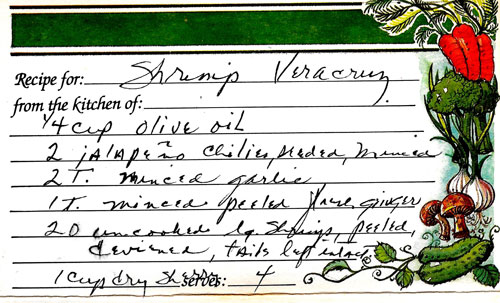 Recipe for: Shrimp Veracruz
from the kitchen of:
1/4 cup olive oil
2 jalapeño chilies, seeded, minced
2 T. minced garlic
1 T. minced peeled fresh ginger
20 uncooked lg. shrimp, peeled,
deviened, tails left intact
1 cup dry sherry serves: 4